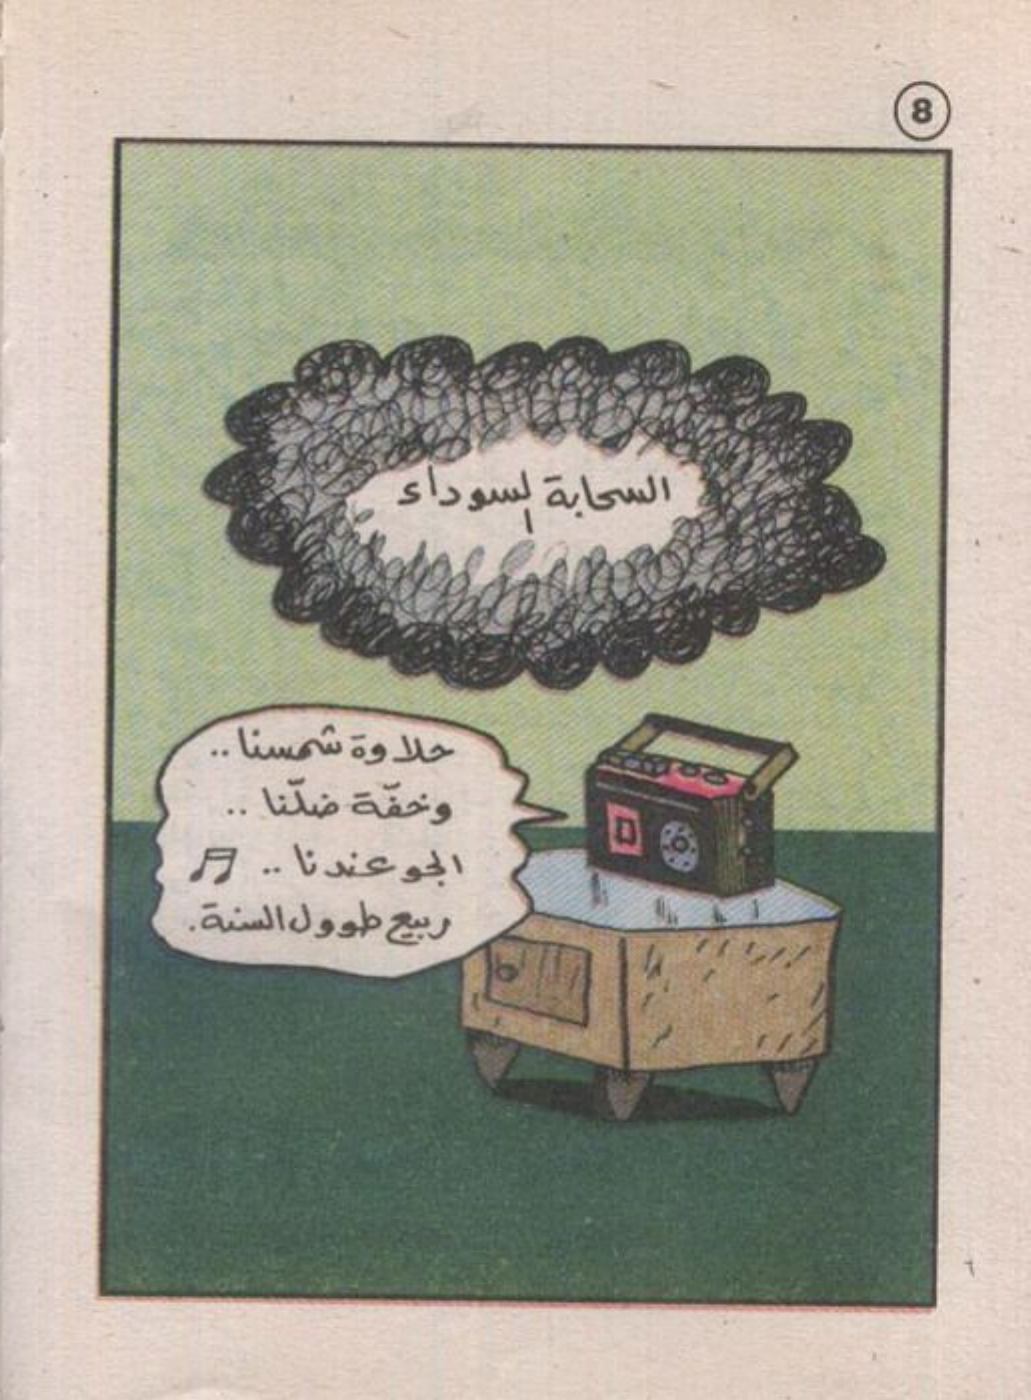 8
السحابة السوداء
حلاوة شمسنا ..
وخفّة ضلّنا ..
الجو عندنا ..
ربيع طوول السنة.